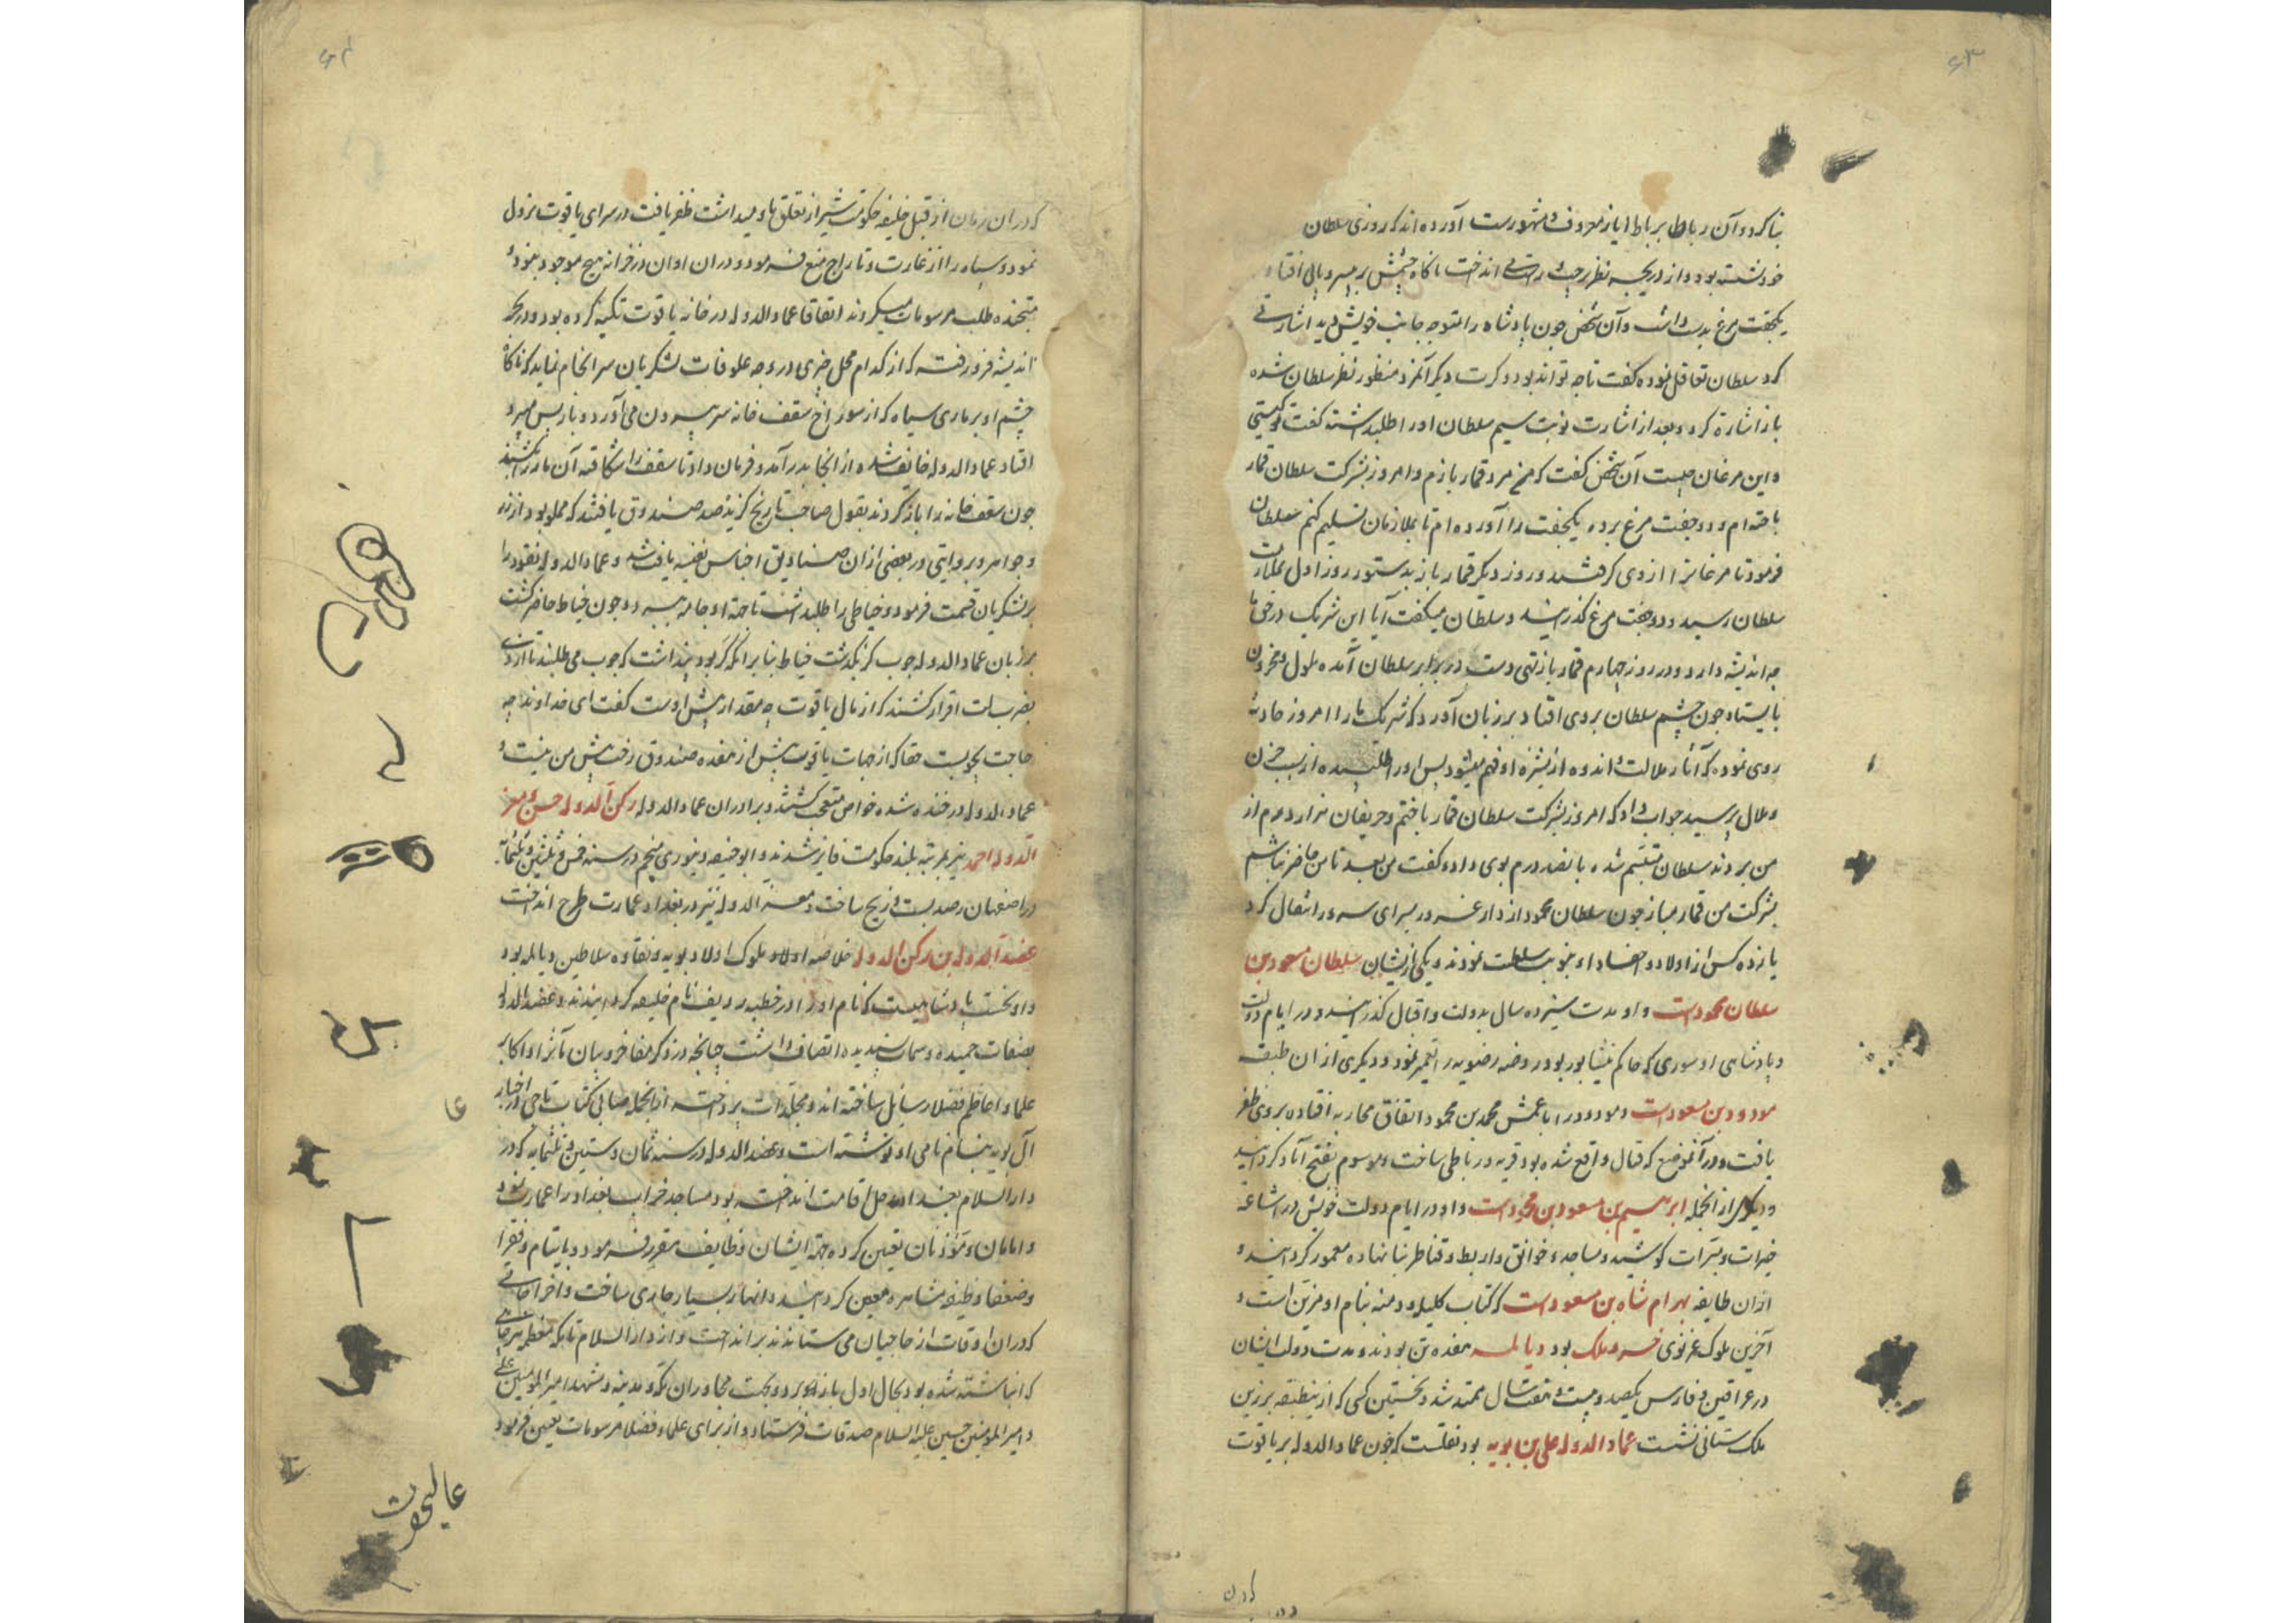 ۶۳
بنا کرد و آن رباط برباط ایاز معروف و مشهورست آورده‌اند که روزی سلطان
خود نشسته بود و از دریچه نظر بچپ و راست می انداخت ناگاه چشمش بر بی سر و پایی افتاد
یکجفت مرغ بدست داشت و آن شخص چون پادشاه را متوجه جانب خویش دید اشارتی
کرد سلطان تغافل نموده گفت تا چه تواند بود و کرت دیگر آنمرد منظور نظر سلطان شده
باز اشارة کرد و بعد از اشارت نوبت سیم سلطان او را طلب داشته گفت تو کیستی
و این مرغان چیست آن شخص گفت که من مرد قمار بازم و امروز بشرکت سلطان قمار
باخته‌ام و دو جفت مرغ برده یکجفت را آورده‌ام تا بملازمان تسلیم کنم سلطان
فرمود تا مرغانرا از وی گرفتند و روز دیگر قمار باز بدستور روز اول بملازمت
سلطان رسید و دو جفت مرغ گذرانید و سلطان میگفت آیا این شریک در حق ما
چه اندیشه دارد و در روز چهارم قمار باز تهی دست در برابر سلطان آمده ملول و محزون
بایستاد چون چشم سلطان بر وی افتاد بر زبان آورد که شریک ما را امروز حادثه
روی نموده که آثار ملالت و اندوه از بشرهٔ او فهم میشود پس او را طلبیده از سبب حزن
و ملال پرسید جواب داد که امروز بشرکت سلطان قمار باختم و حریفان هزار درم از
من بردند سلطان متبسم شده پانصد درم بوی داد و گفت من بعد تا من حاضر نباشم
بشرکت من قمار مباز چون سلطان محمود از دار غرور بسرای سرور انتقال کرد
یازده کس از اولاد و احفاد او بنوبت سلطنت نمودند و یکی از ایشان سلطان مسعود بن
سلطان محمودست و او مدت سیزده سال بدولت و اقبال گذرانید و در ایام دولت
و پادشاهی او سوری که حاکم نیشابور بود روضه رضویه را تعمیر نمود و دیگری از ان طبقه
مودود بن مسعودست و مودود را با عمش محمد بن محمود اتفاق محاربه افتاده بر وی ظفر
یافت و در آنموضع که قتال واقع شده بود قریه و رباطی ساخت و موسوم بفتح آباد گردانید
و دیگر از انجمله ابرهیم بن مسعود بن محمودست و او در ایام دولت خویش در اشاعهٔ
خیرات و مبرات کوشید و مساجد و خوانق و اربطه و قناطر بنا نهاده معمور گردانید و
از ان طایفه بهرام شاه بن مسعودست که کتاب کلیله و دمنه بنام او مزین است و
آخرین ملوک غزنوی خسرو ملک بود دیالمه هفده تن بودند و مدت دولت ایشان
در عراقین و فارس یکصد و بیست و هفت سال ممتد شد و نخستین کسی که از ینطبقه بر زین
ملک ستانی نشست عماد الدوله علی بن بویه بود نقلست که چون عماد الدوله بر یاقوت
که در ان زمان از قبل خلیفه حکومت شیراز تعلق باو میداشت ظفر یافت در سرای یاقوت نزول
نمود و سپاه را از غارت و تاراج منع فرمود و در ان اوان در خزانه هیچ موجود نبود و
متجنده طلب مرسومات میکردند اتفاقا عماد الدوله در خانه یاقوت تکیه کرده بود و در بحر
اندیشه فرو رفته که از کدام محل چیزی در وجه علوفات لشکریان سر انجام نماید که ناگاه
چشم او بر ماری سیاه که از سوراخ سقف خانه سر بیرون می آورد و باز پس میبرد
افتاد عماد الدوله خایف شده از انجا بدر آمد و فرمان داد تا سقف را شکافته آن مار را بکشند
چون سقف خانه را باز کردند بقول صاحب تاریخ گزیده صد صندوق یافتند که مملو بود از زر
و جواهر و بروایتی در بعضی از ان صنادیق اجناس نفیسه یافت شد و عماد الدوله نقود را
بر لشکریان قسمت فرمود و خیاطی را طلب داشت تا جهة او جامه ببرد و چون خیاط حاضر گشت
بر زبان عماد الدوله چوب گز بگذشت خیاط بنا بر انکه کر بود پنداشت که چوب می طلبند تا از وی
بضرب لت اقرار کشند که از مال یاقوت چه مقدار پیش اوست گفت ای خداوند چه
حاجت بچوبست حقا که از جهات یاقوت بیش از هفده صندوق رخت پیش من نیست و
عماد الدوله در خنده شده خواص متعجب گشتند و برادران عماد الدوله رکن الدوله حسن و معز
الدوله احمد نیز بمرتبه بلند حکومت فایز شدند و ابو حنیفه دینوری منجم در سنه خمس و ثلثین و ثلثمائه
در اصفهان رصد بست و زیج ساخت و معز الدوله نیز در بغداد عمارت طرح انداخت
عضد الدوله بن رکن الدوله خلاصه اولاد ملوک اولاد بویه و نقاوه سلاطین دیالمه بود
و او نخست پادشاهیست که نام او را در خطبه ردیف نام خلیفه گردانیدند و عضد الدوله
بصفات حمیده و سمات پسندیده اتصاف داشت چنانچه در ذکر مفاخر و بیان مآثر او اکابر
علما و اعاظم فضلا رسایل ساخته‌اند و مجلدات پرداخته از انجمله صابی کتاب تاجی در اخبار
آل بویه بنام نامی او نوشته است و عضد الدوله در سنه ثمان و ستین و ثلثمایه که در
دار السلام بغداد رحل اقامت انداخته بود مساجد خراب بغداد را عمارت نمود
و امامان و مؤذنان تعیین کرده جهة ایشان وظایف مقرر فرمود و بایتام و فقرا
و ضعفا وظیفه مشاهره معین گردانید و انهار بسیار جاری ساخت و اخراجاتی
که در ان اوقات از حاجیان می ستاندند بر انداخت و از دار السلام تا مکه معظمه هر چاهی
که انباشته شده بود بحال اول باز آورد و بجهت مجاوران مکه و مدینه و مشهد امیر المومنین علی
و امیر المومنین حسین علیه السلام صدقات فرستاد و از برای علما و فضلا مرسومات تعیین فرمود